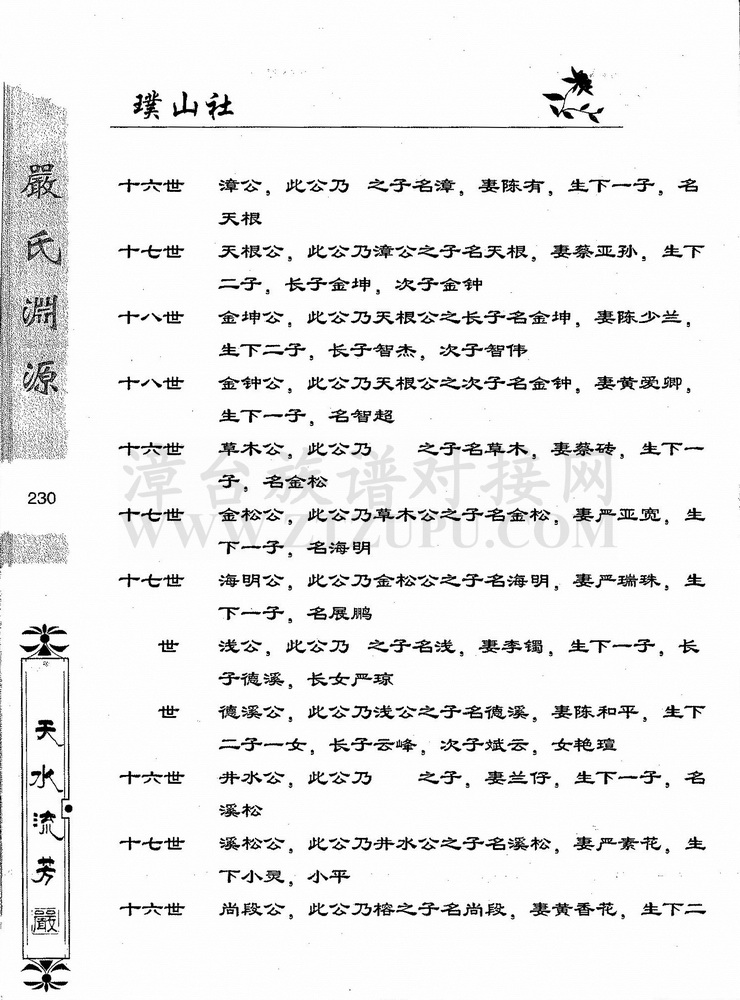 璞山社
嚴氏淵源
230
天水流芳
嚴
十六世 漳公，此公乃 之子名漳，妻陈有，生下一子，名
天根
十七世 天根公，此公乃漳公之子名天根，妻蔡亚孙，生下
二子，长子金坤，次子金钟
十八世 金坤公，此公乃天根公之长子名金坤，妻陈少兰，
生下二子，长子智杰，次子智伟
十八世 金钟公，此公乃天根公之次子名金钟，妻黄爱卿，
生下一子，名智超
十六世 草木公，此公乃 之子名草木，妻蔡砖，生下一
子，名金松
十七世 金松公，此公乃草木公之子名金松，妻严亚宽，生
下一子，名海明
十七世 海明公，此公乃金松公之子名海明，妻严瑞珠，生
下一子，名展鹏
世 浅公，此公乃 之子名浅，妻李镯，生下一子，长
子德溪，长女严琼
世 德溪公，此公乃浅公之子名德溪，妻陈和平，生下
二子一女，长子云峰，次子斌云，女艳瑄
十六世 井水公，此公乃 之子，妻兰仔，生下一子，名
溪松
十七世 溪松公，此公乃井水公之子名溪松，妻严素花，生
下小灵，小平
十六世 尚段公，此公乃榕之子名尚段，妻黄香花，生下二
漳台族谱对接网
WWW.ZTZUPU.COM